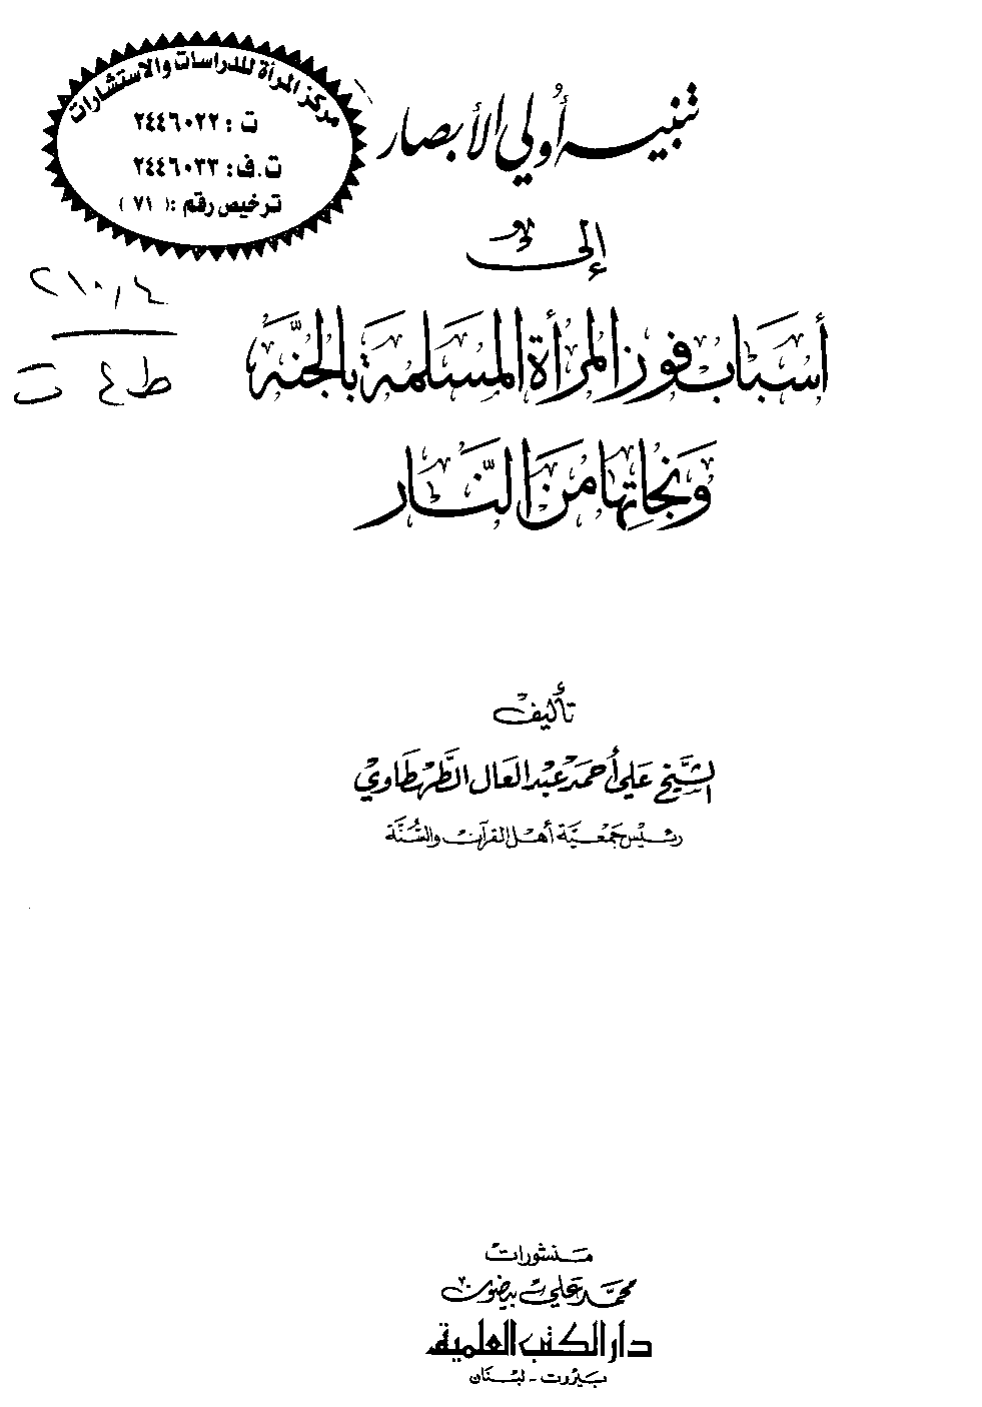 مركز المرأة للدراسات والاستشارات
ت : ٢٤٤٦٠٢٢
ت.ف: ٢٤٤٦٠٣٣
ترخيص رقم :( ٧١ )
تنبيه أولي الأبصار
إلى
أسباب فوز المرأة المسلمة بالجنة
ونجاتها من النار
٢١٠,٤
ط ع ت
تأليف
الشيخ علي أحمد عبد العال الطهطاوي
رئيس جمعية أهل القرآن والسنة
منشورات
محمد علي بيضون
دار الكتب العلمية
بيروت - لبنان